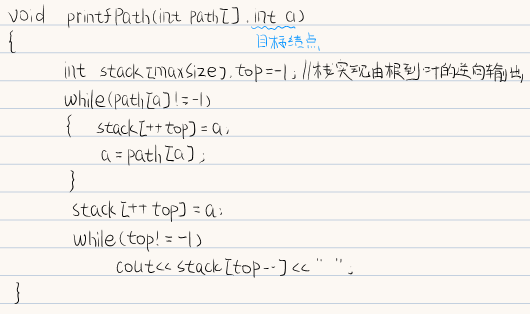 void printfPath(int path[], int a)
目标结点
{
int stack[maxSize], top=-1; //栈实现由根到叶的逆向输出
while(path[a]!=-1)
{ stack[++top]=a;
a=path[a];
}
stack[++top]=a;
while(top!=-1)
cout<<stack[top--]<<" ";
}